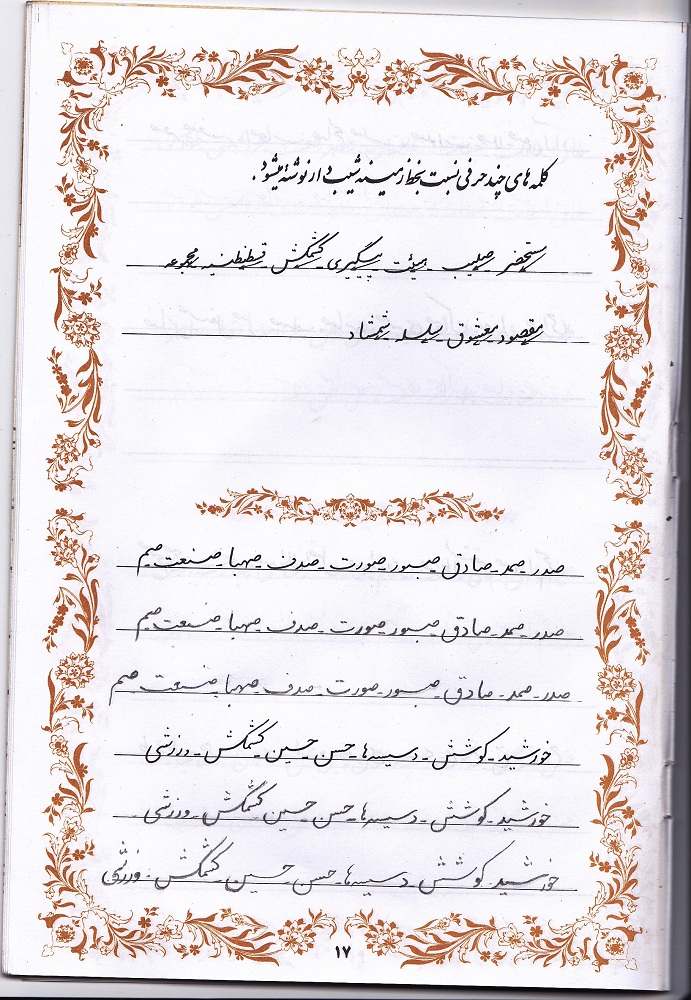 کلمه های چند حرفی نسبت بخط زمینه شیب دار نوشته میشود.
مستحضر صلیب هیئت پیگیری کشمکش قسطنطنیه مجموعه
مقصود معشوق سلسله شمشاد
صدر - صمد - صادق - صبور - صورت - صدف - صهبا - صنعت - صمیم
صدر - صمد - صادق - صبور - صورت - صدف - صهبا - صنعت - صمیم
صدر - صمد - صادق - صبور - صورت - صدف - صهبا - صنعت - صمیم
خورشید - کوشش - دسیسه ها - حسن - حسین - کشمکش - ورزشی
خورشید - کوشش - دسیسه ها - حسن - حسین - کشمکش - ورزشی
خورشید - کوشش - دسیسه ها - حسن - حسین - کشمکش - ورزشی
۱۷